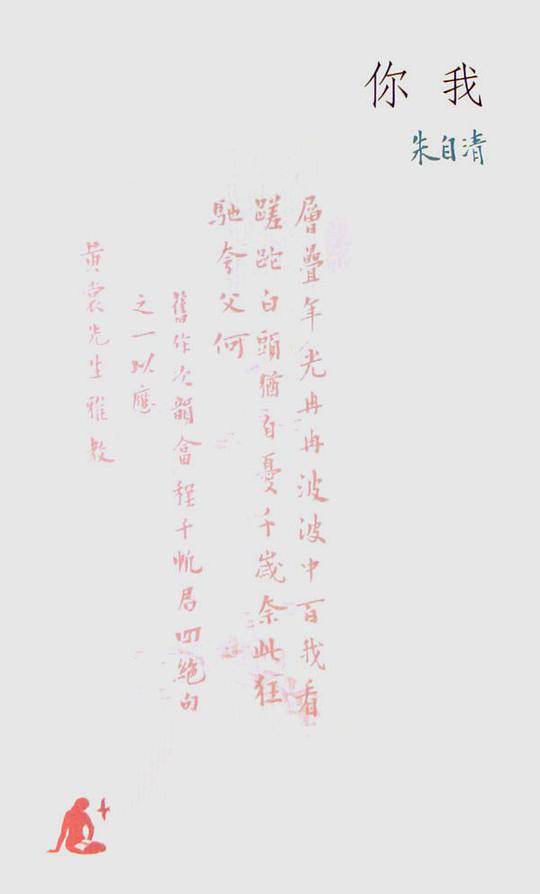 你我
朱自清
層疊年光冉冉波波中百我看
蹉跎白頭猶自憂千歲奈此狂
馳夸父何
舊作次韻畣程千帆君四絕句
之一以應
黄裳先生雅教